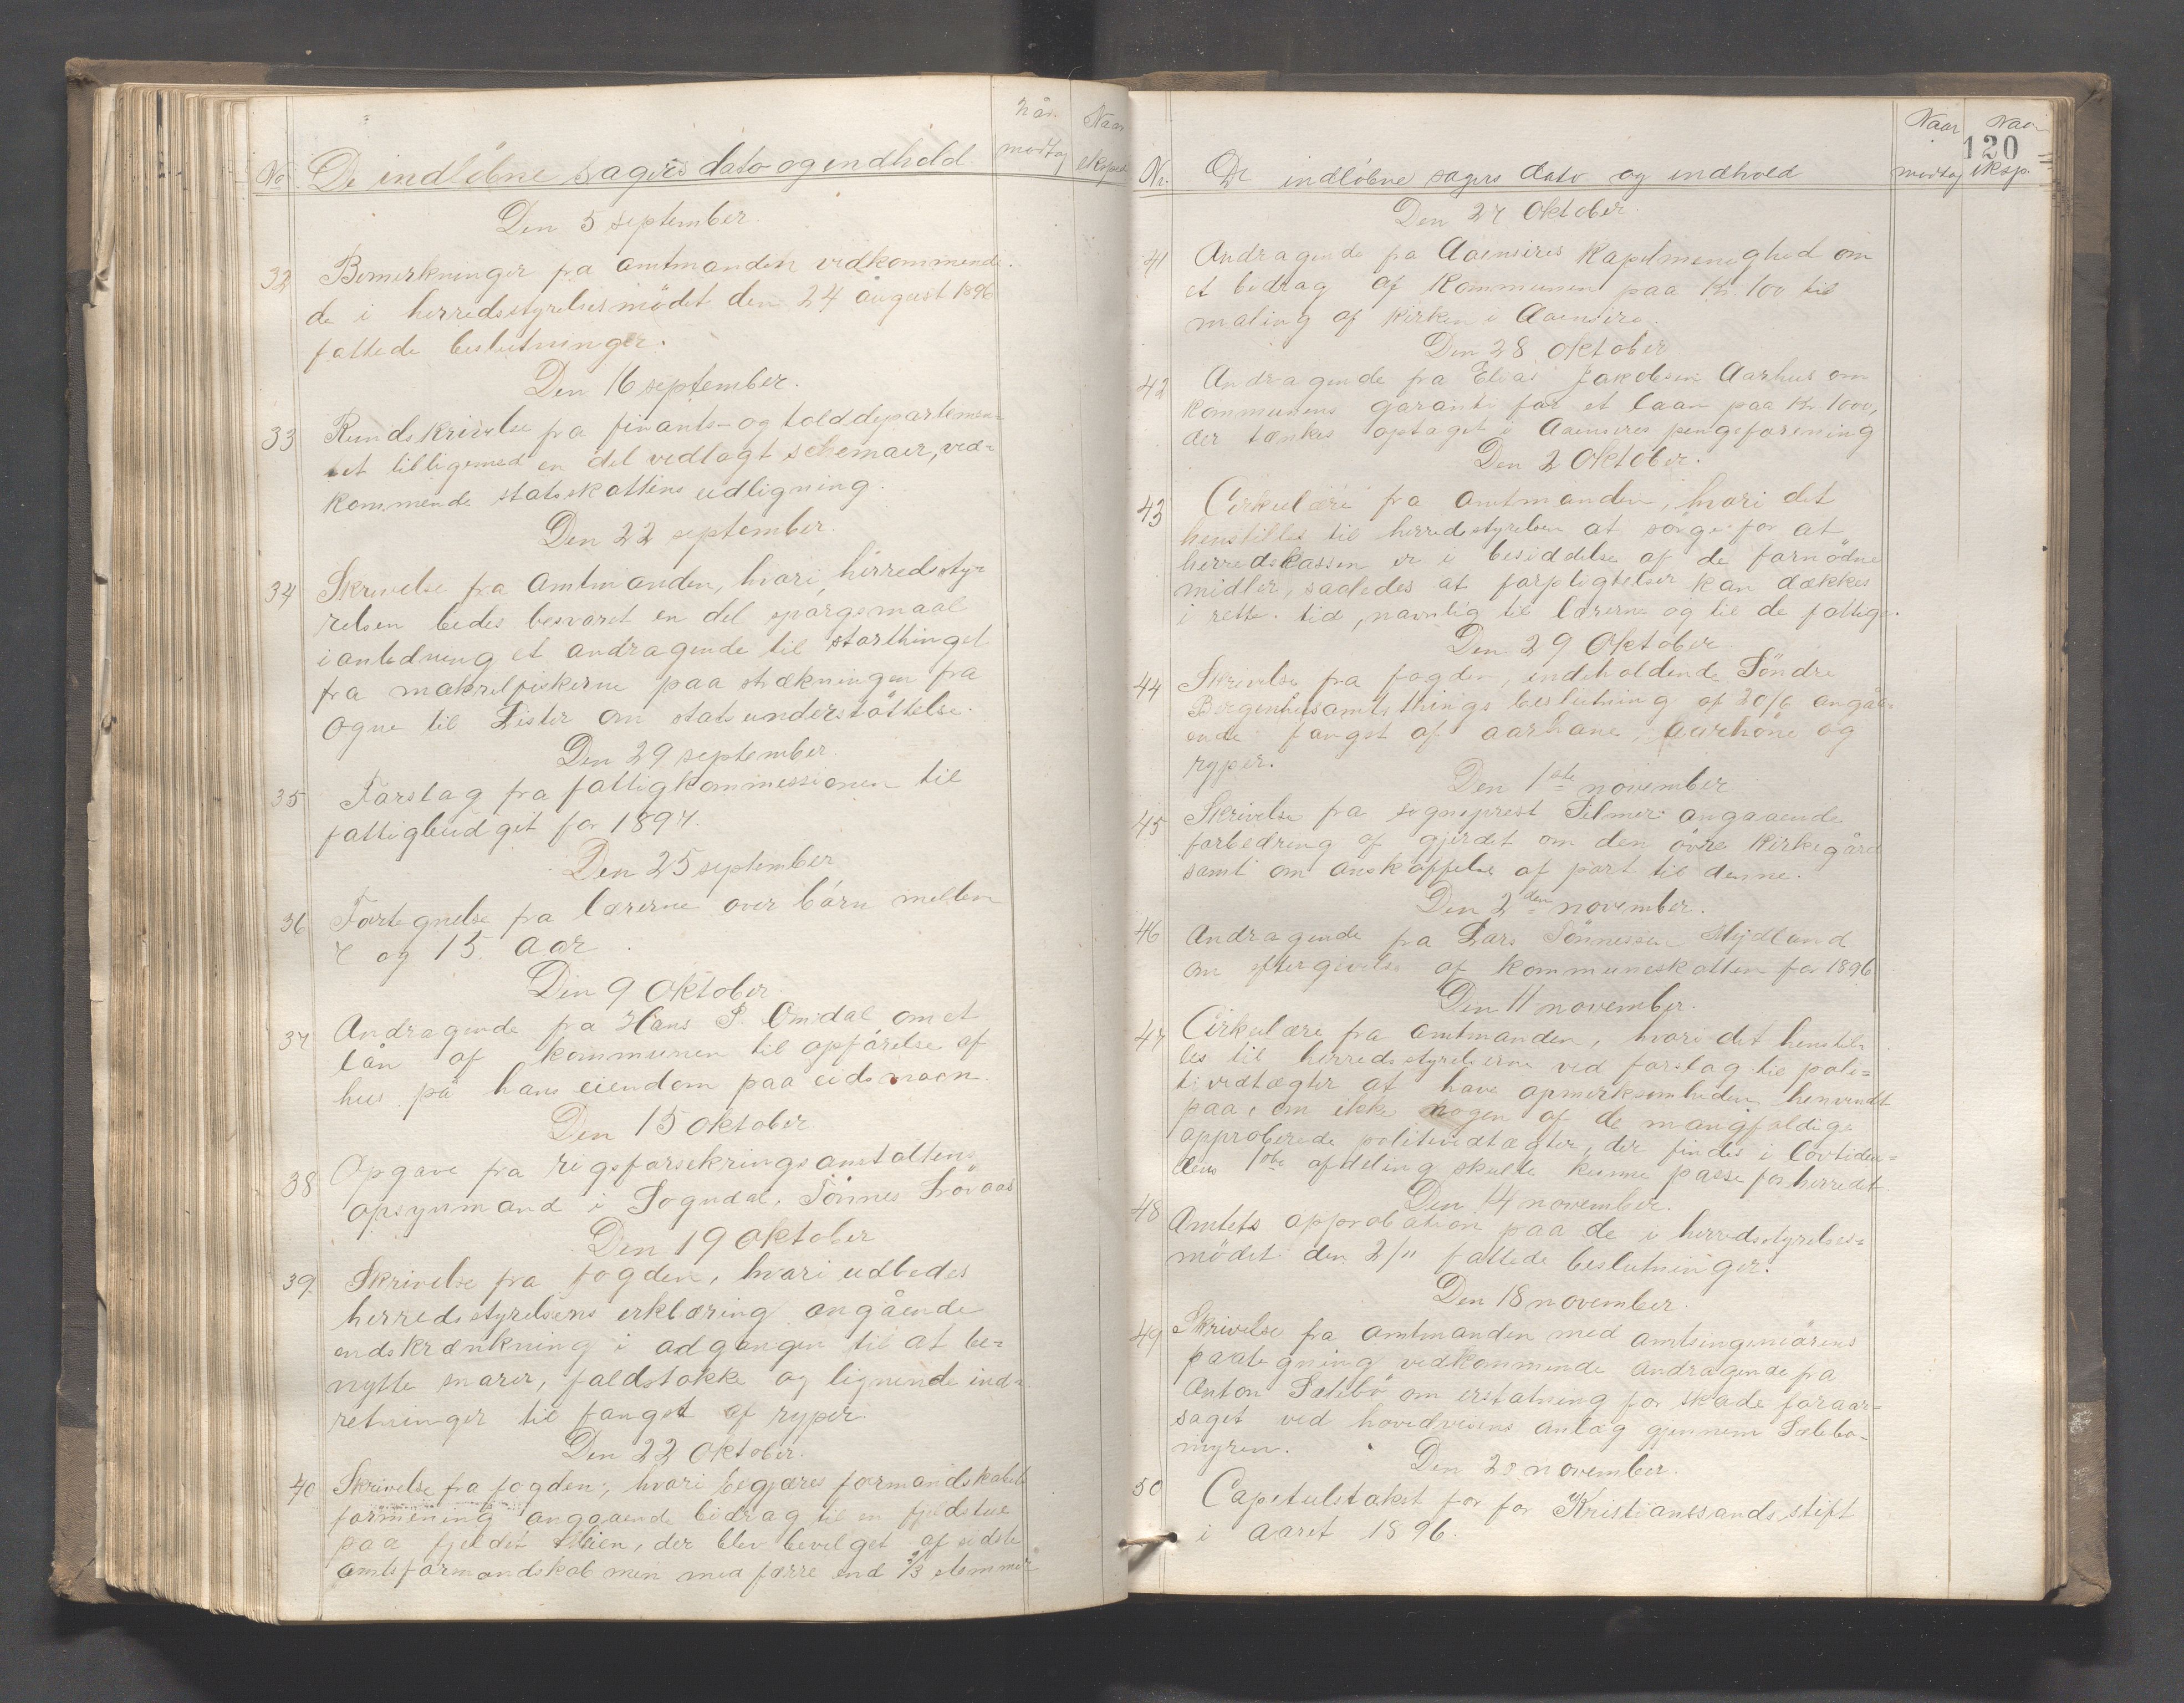 No De indløbne sagers dato og indhold
Når modtag
Naar eksped
Den 5 september.
32 Bemerkninger fra amtmanden vedkommende
de i herredsstyrelsesmødet den 24 august 1896
fattede beslutninger.
Den 16 september.
33 Rundskrivelse fra finants- og tolddepartemen-
tet tilligemed en del vedlagt schemaer, ved-
kommende statsskattens udligning.
Den 22 september
34 Skrivelse fra amtmanden, hvori herredssty-
relsen bedes besvaret en del spørgsmaal
i anledning et andragende til storthinget
fra makrelfiskerne paa strækningen fra
Ogne til Lister om statsunderstøttelse.
Den 29 september
35 Forslag fra fattigkommessionen til
fattigbudget for 1897.
Den 25 september
36 Fortegnelse fra lærerne over børn mellem
7 og 15 aar.
Den 9 Oktober
37 Andragende fra Hans P. Omdal om et
lån af kommunen til opførelse af
hus på hans eiendom paa eidsmoen.
Den 15 oktober
38 Opgave fra rigsforsekringsanstaltens
opsynmand i Sogndal. Tønnes Frøvaas
Den 19 oktober
39. Skrivelse fra fogden, hvori udbedes
herredsstyrelsens erklæring angående
endskrænkning i adgangen til at be-
nytte snarer, faldstokke og lignende ind-
retninger til fangst af ryper.
Den 22 Oktober.
40 Skrivelse fra fogden, hvori begjæres formandskabets
formening angaaende bidrag til en fjeldstue
paa fjeldet, der blev bevilget af sidste
amtsformandskab men med færre end 2/3 stemmer
120
Nr. De indløbne sagers dato og indhold
Naar modtag
Naar eksp.
Den 27 Oktober.
41 Andragende fra Aaensires Kapelmenighed om
et bedrag af Kommunen paa Kr. 100 til
maling af kirken i Aaensire.
Den 28 oktober
42 Andragende fra Elias Jakobsen Aarhus om
kommunens garanti for et laan paa Kr. 1000,
der tænkes optaget i Aaensires pengeforening
Den 2 Oktober.
43 Cirkulære fra amtmanden, hvori det
henstilles til herredsstyrelsen at sørge for at
herredskassen er i besiddelse af de fornødne
midler, saaledes at forpligtelser kan dækkes
i rette tid, navnlig til lærerne og til de fattige.
Den 29 Oktober
44 Skrivelse fra fogden, indeholdende Søndre
Bergenhusamtsthings beslutning af 20/6 angåe-
ende fangst af aarhane, aarhøne og
ryper.
Den 1ste november
45 Skrivelse fra sogneprest Selmer angaaende
forbedring af gjerdet om den øvre kirkegård
samt om anskaffelse af port til denne.
Den 2den november.
46 Andragende fra Lars Tønnessen Mydland
om eftergivelse af kommuneskatten for 1896
Den 11 november.
47 Cirkulære fra amtmanden, hvori det henstil-
les til herredsstyrelserne ved forslag til poli-
tividtægter at have opmerksomheden henvendt
paa, om ikke nogen af de mangfoldige
approberede politividtægter, der findes i lovtiden-
dens 1ste afdeling skulle kunne passe for herredet
Den 14 november.
48 Amtets approbation paa de i herredsstyrelses-
mødet den 2/11 fattede beslutninger.
Den 18 november.
49 Skrivelse fra amtmanden med amtsingeniørens
paategning vedkommende andragende fra
Anton Sælebø om erstatning for skade foraar-
saget ved hovedveiens anlæg gjennem Sælebø-
myren.
Den 20 november.
50 Capitulstakst for for Kristianssands stift
i aaret 1896.